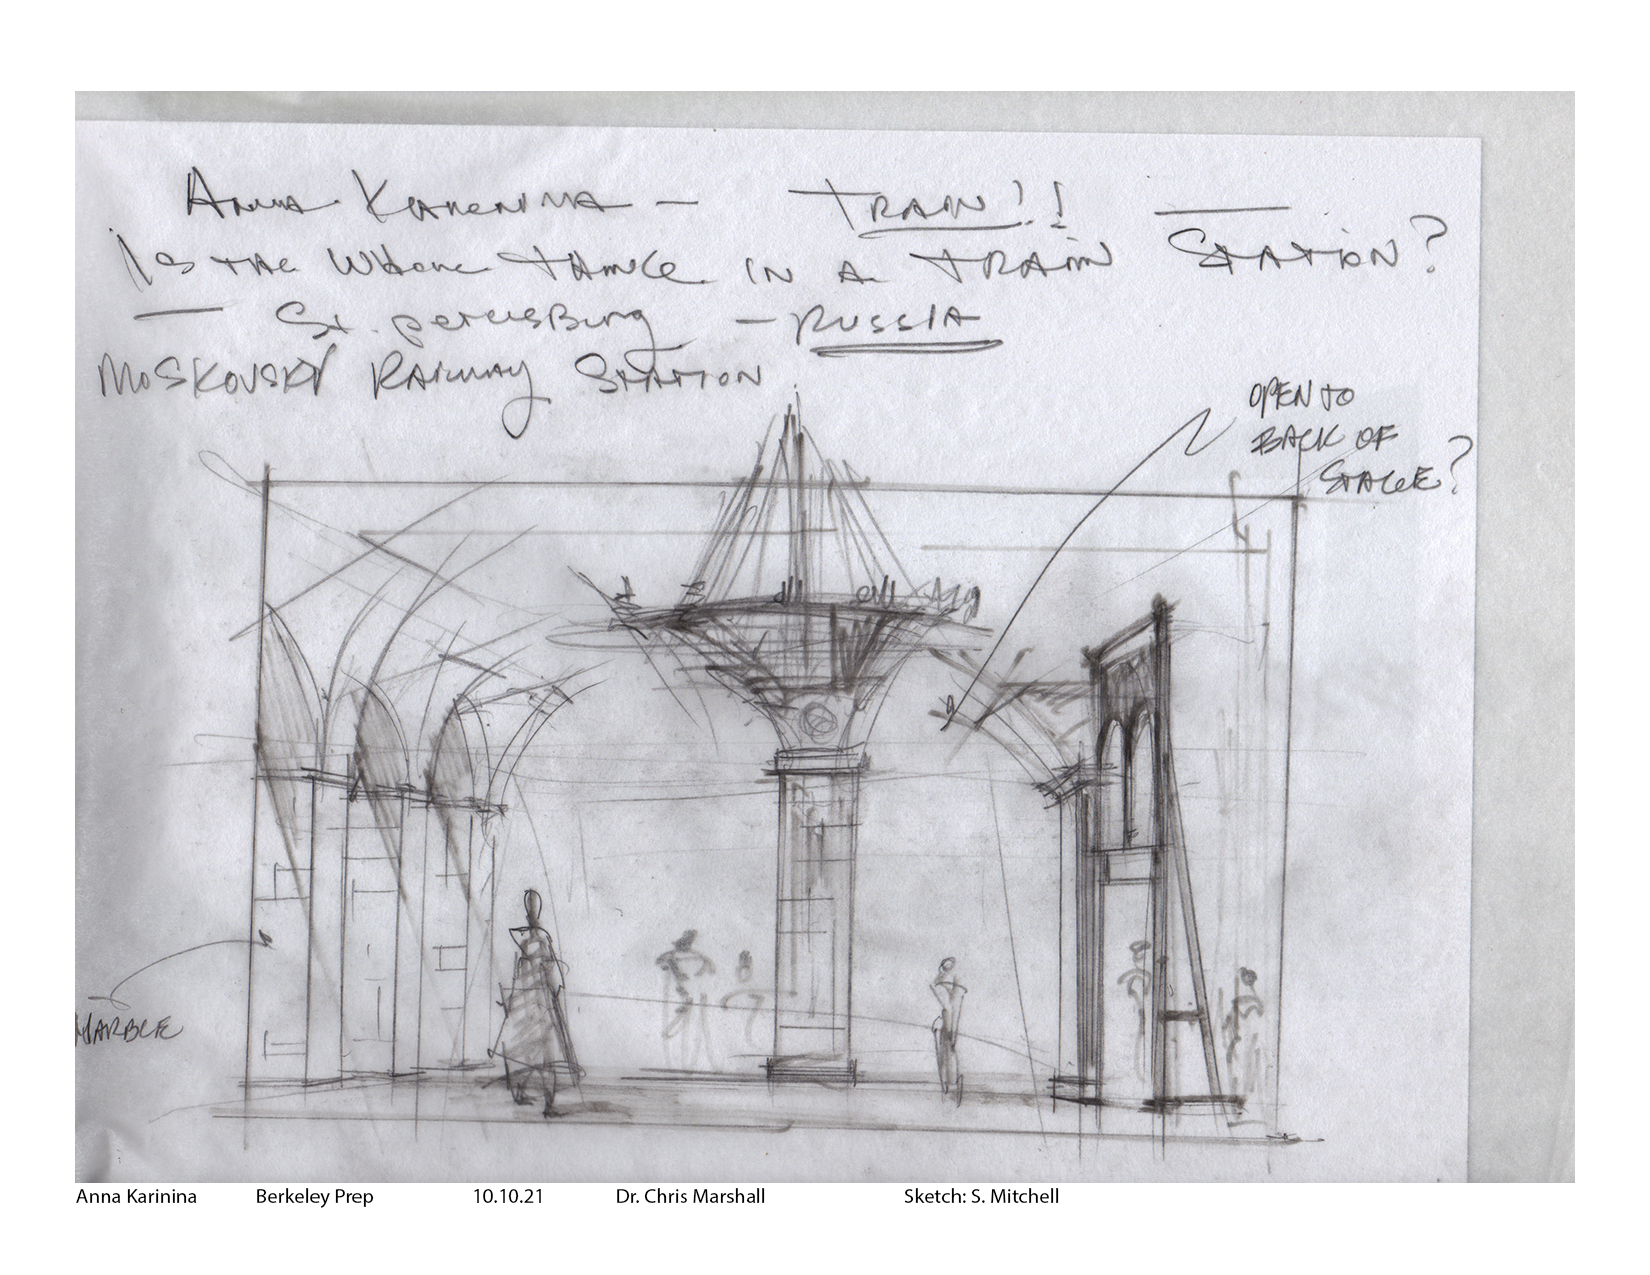 Anna Karenina — TRAIN!!
Is the whole thing in a train station?
— St. Petersburg — RUSSIA
MOSKOVSKY RAILWAY STATION
OPEN TO
BACK OF
STAGE?
MARBLE
Anna Karinina Berkeley Prep 10.10.21 Dr. Chris Marshall Sketch: S. Mitchell